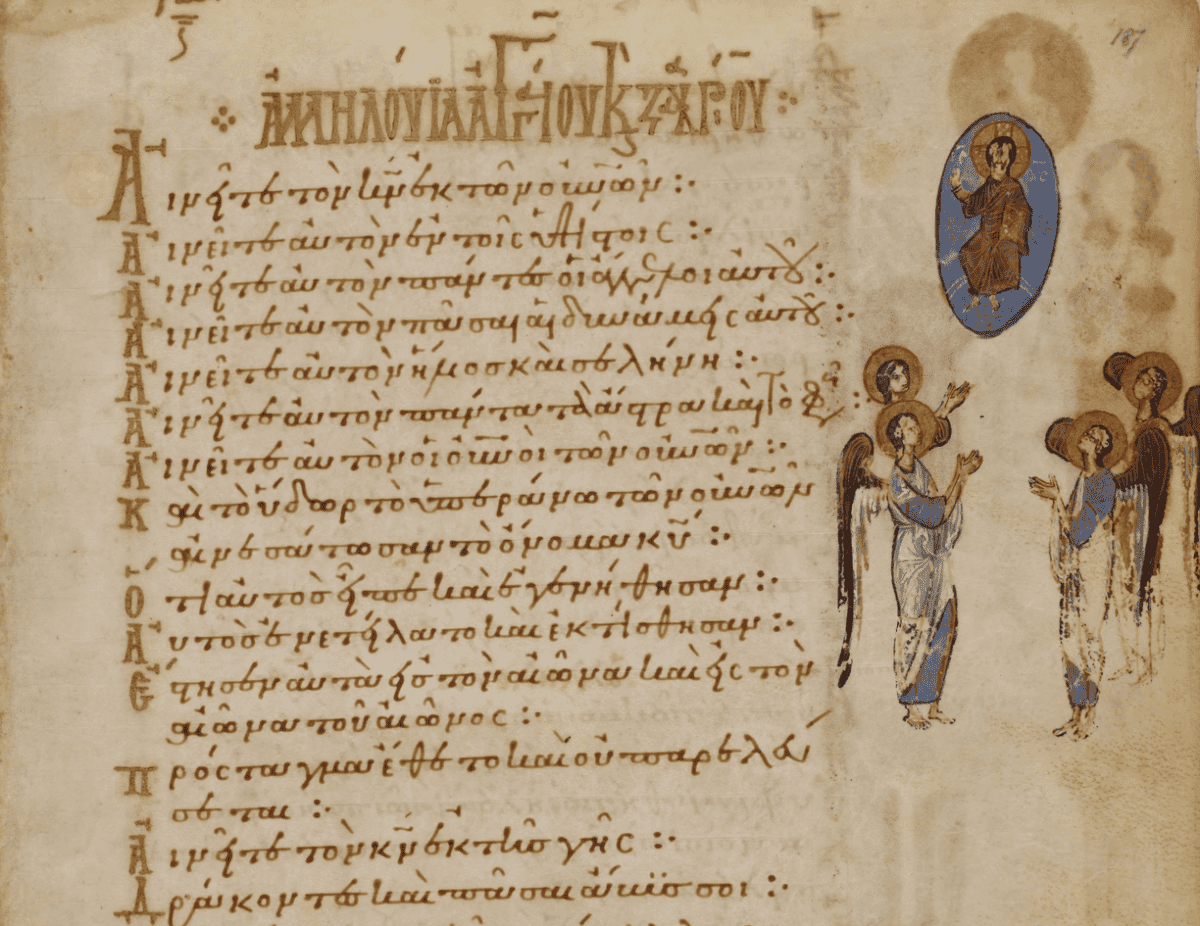 187
ἀλληλούϊα ἀγγαίου κ ζαχαρίου
Αἰνεῖτε τὸν κ̅ν̅ ἐκ τῶν οὐν̅ῶν :·
Αἰνεῖτε αὐτὸν ἐν τοῖς ὑψίστοις :·
Αἰνεῖτε αὐτὸν πάντες οἱ ἄγγελοι αὐτοῦ :·
Αἰνεῖτε αὐτὸν πᾶσαι αἱ δυνάμεις αὐτοῦ :·
Αἰνεῖτε αὐτὸν ἥλιος καὶ σελήνη :·
Αἰνεῖτε αὐτὸν πάντα τὰ ἄστρα καὶ τὸ φῶς :
Αἰνεῖτε αὐτὸν οἱ οὐν̅οὶ τῶν οὐν̅ῶν :·
Καὶ τὸ ὕδωρ τὸ ὑπεράνω τῶν οὐν̅ῶν
αἰνεσάτωσαν τὸ ὄνομα κ̅υ̅ :·
Ὅτι αὐτὸς εἶπε καὶ ἐγενήθησαν :·
Αὐτὸς ἐνετείλατο καὶ ἐκτίσθησαν :·
Ἔστησεν αὐτὰ εἰς τὸν αἰῶνα καὶ εἰς τὸν
αἰῶνα τοῦ αἰῶνος :·
Πρόσταγμα ἔθετο καὶ οὐ παρελεύ
σεται :·
Αἰνεῖτε τὸν κ̅ν̅ ἐκ τῆς γῆς :·
Δράκοντες καὶ πᾶσαι ἄβυσσοι :·